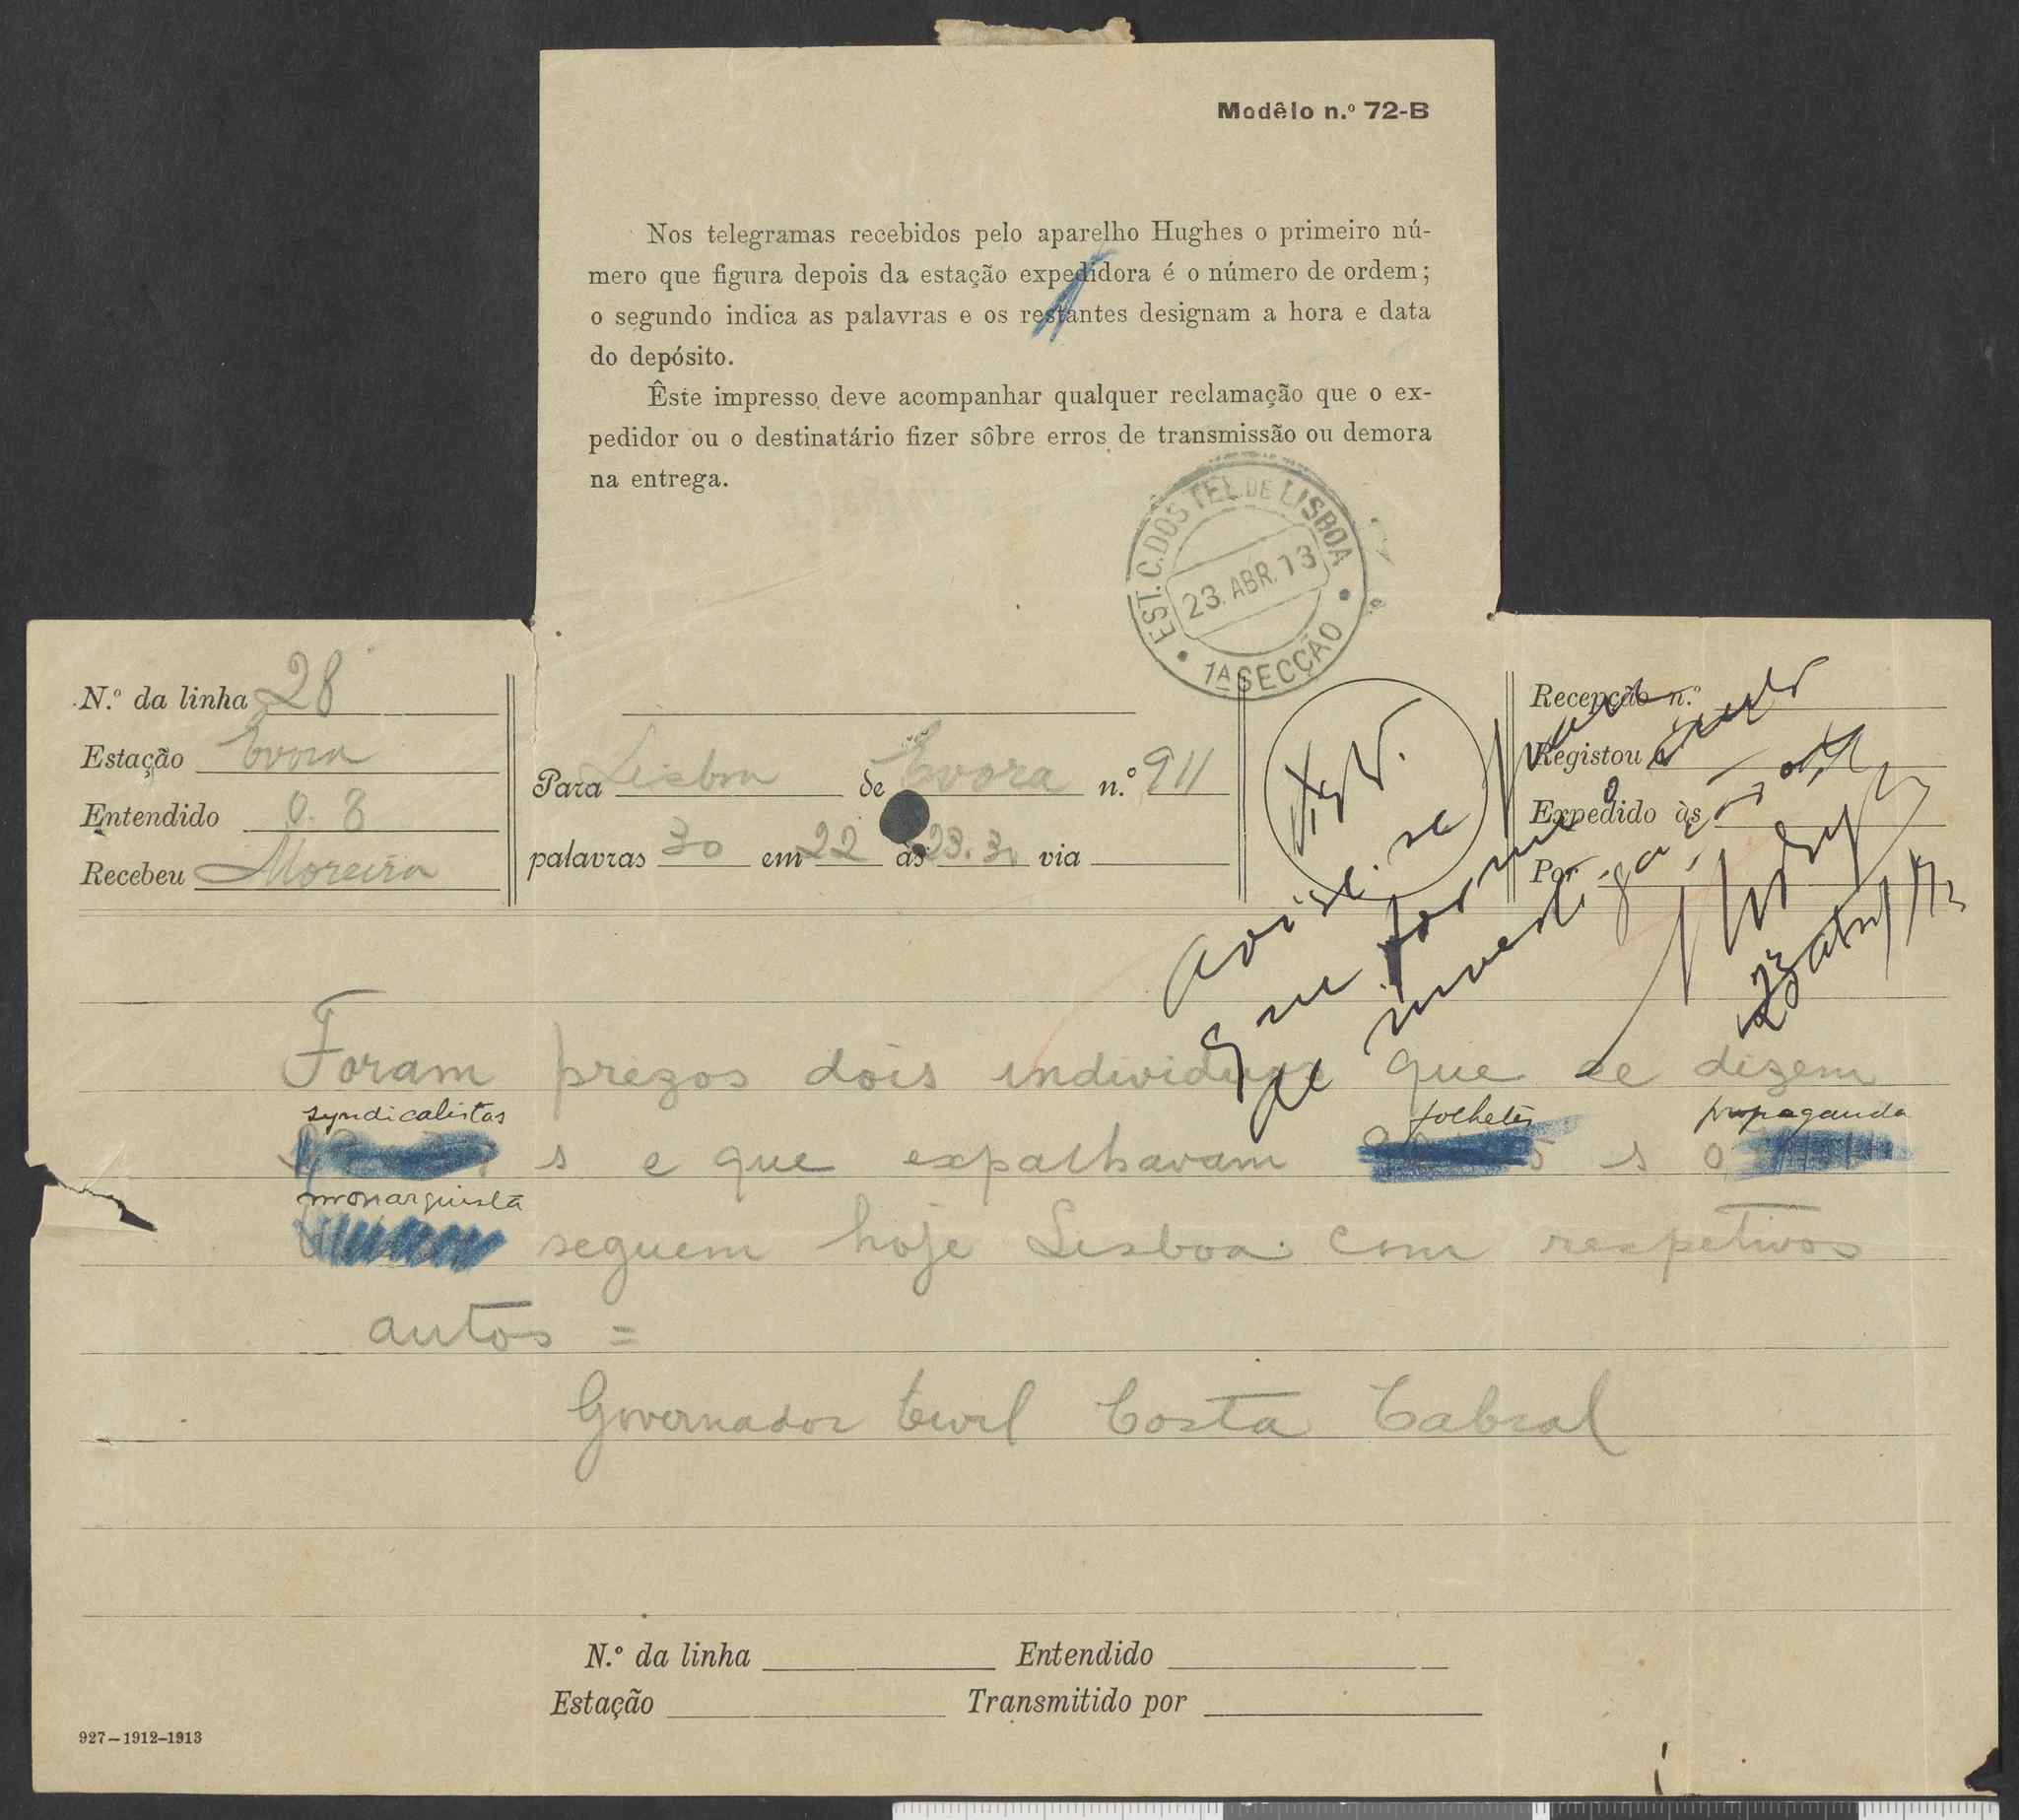 Modêlo n.º 72-B
Nos telegramas recebidos pelo aparelho Hughes o primeiro nú-
mero que figura depois da estação expedidora é o número de ordem;
o segundo indica as palavras e os restantes designam a hora e data
do depósito.
Êste impresso deve acompanhar qualquer reclamação que o ex-
pedidor ou o destinatário fizer sôbre erros de transmissão ou demora
na entrega.
EST. C. DOS TEL. DE LISBOA
23. ABR. 13
1ª SECÇÃO
N.º da linha 28
Estação Evora
Entendido 0. 8
Recebeu Moreira
Para Lisboa de Evora n.º 911
palavras 30 em 22 ás 23.30 via
Recepção n.º
Registou
Expedido às
Por
Avise-se
que forme
de investigação
23 abril 1913
Foram prezos dois individuos que se dizem
syndicalistas folhetos propaganda
s e que espalhavam s s o
monarquista
seguem hoje Lisboa com respetivos
autos =
Governador Civil Costa Cabral
N.º da linha Entendido
Estação Transmitido por
927-1912-1913